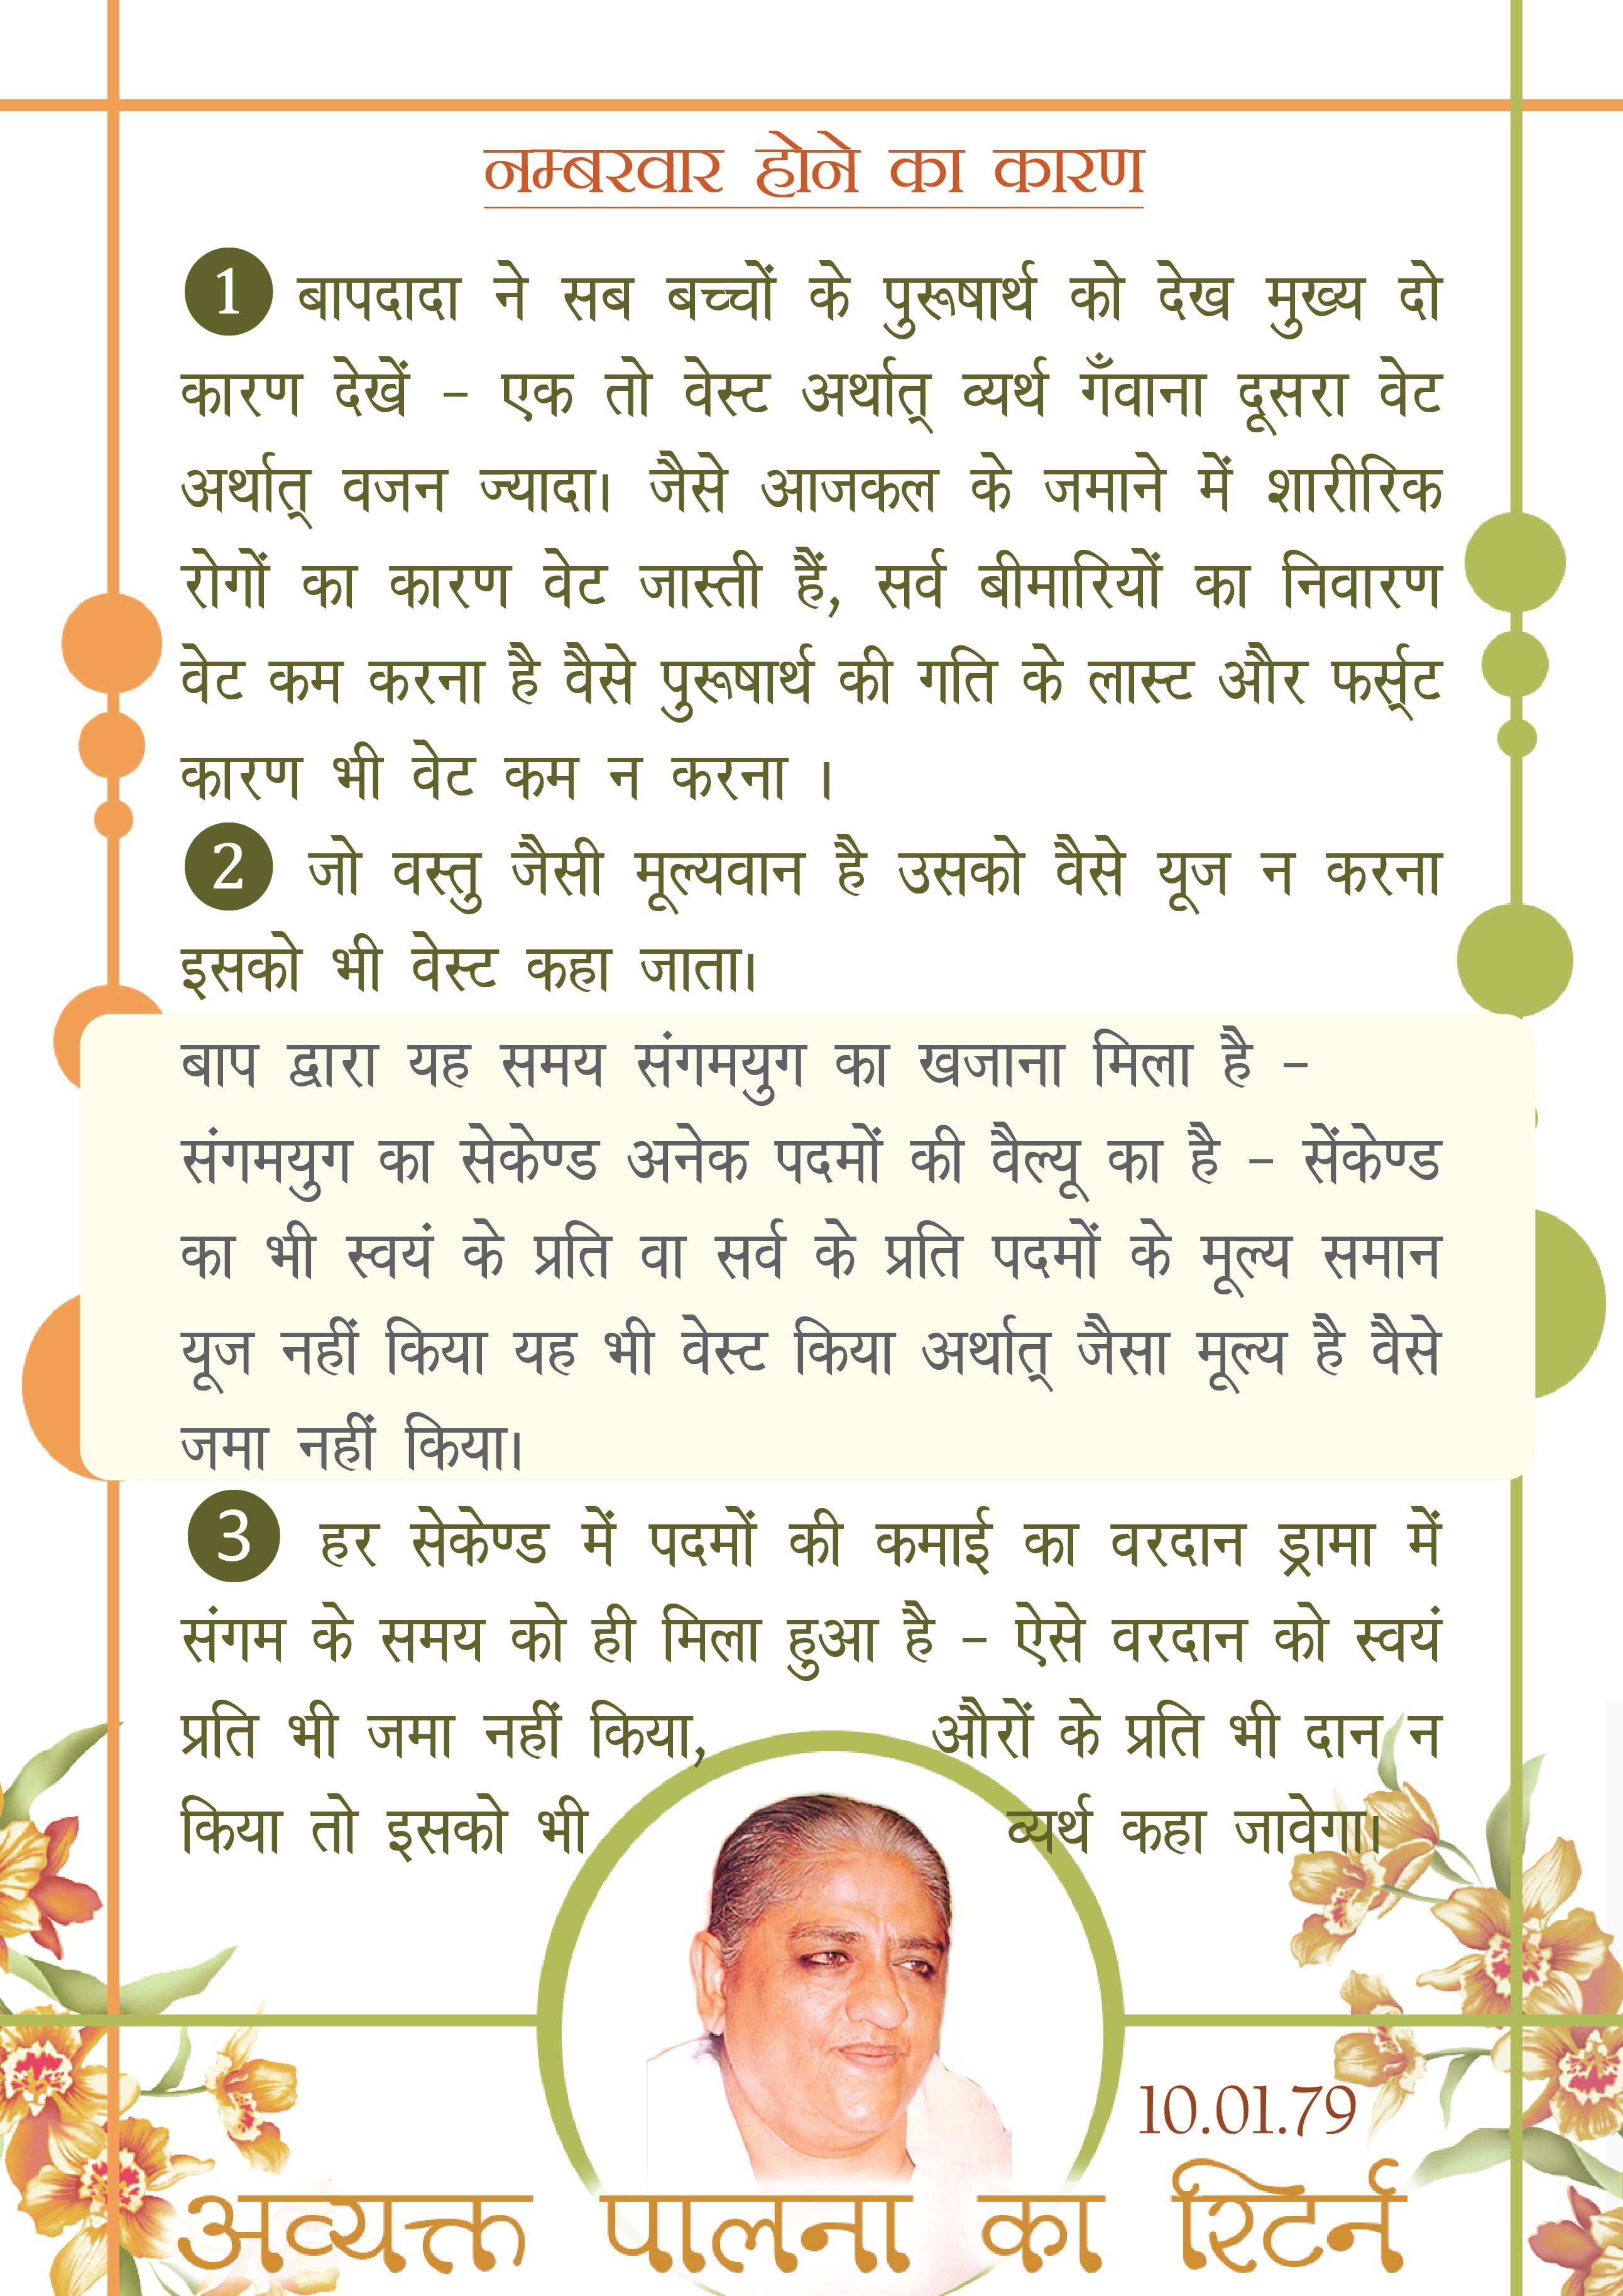 नम्बरवार होने का कारण
1 बापदादा ने सब बच्चों के पुरूषार्थ को देख मुख्य दो
कारण देखें - एक तो वेस्ट अर्थात् व्यर्थ गँवाना दूसरा वेट
अर्थात् वजन ज्यादा। जैसे आजकल के जमाने में शारीरिक
रोगों का कारण वेट जास्ती हैं, सर्व बीमारियों का निवारण
वेट कम करना है वैसे पुरूषार्थ की गति के लास्ट और फर्स्ट
कारण भी वेट कम न करना ।
2 जो वस्तु जैसी मूल्यवान है उसको वैसे यूज न करना
इसको भी वेस्ट कहा जाता।
बाप द्वारा यह समय संगमयुग का खजाना मिला है -
संगमयुग का सेकेण्ड अनेक पदमों की वैल्यू का है - सेंकेण्ड
का भी स्वयं के प्रति वा सर्व के प्रति पदमों के मूल्य समान
यूज नहीं किया यह भी वेस्ट किया अर्थात् जैसा मूल्य है वैसे
जमा नहीं किया।
3 हर सेकेण्ड में पदमों की कमाई का वरदान ड्रामा में
संगम के समय को ही मिला हुआ है - ऐसे वरदान को स्वयं
प्रति भी जमा नहीं किया, औरों के प्रति भी दान न
किया तो इसको भी व्यर्थ कहा जावेगा।
10.01.79
अव्यक्त पालना का रिटर्न